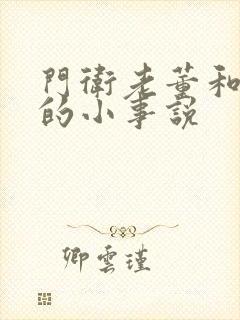 門衛老董和
的小事說
卿雲瑾